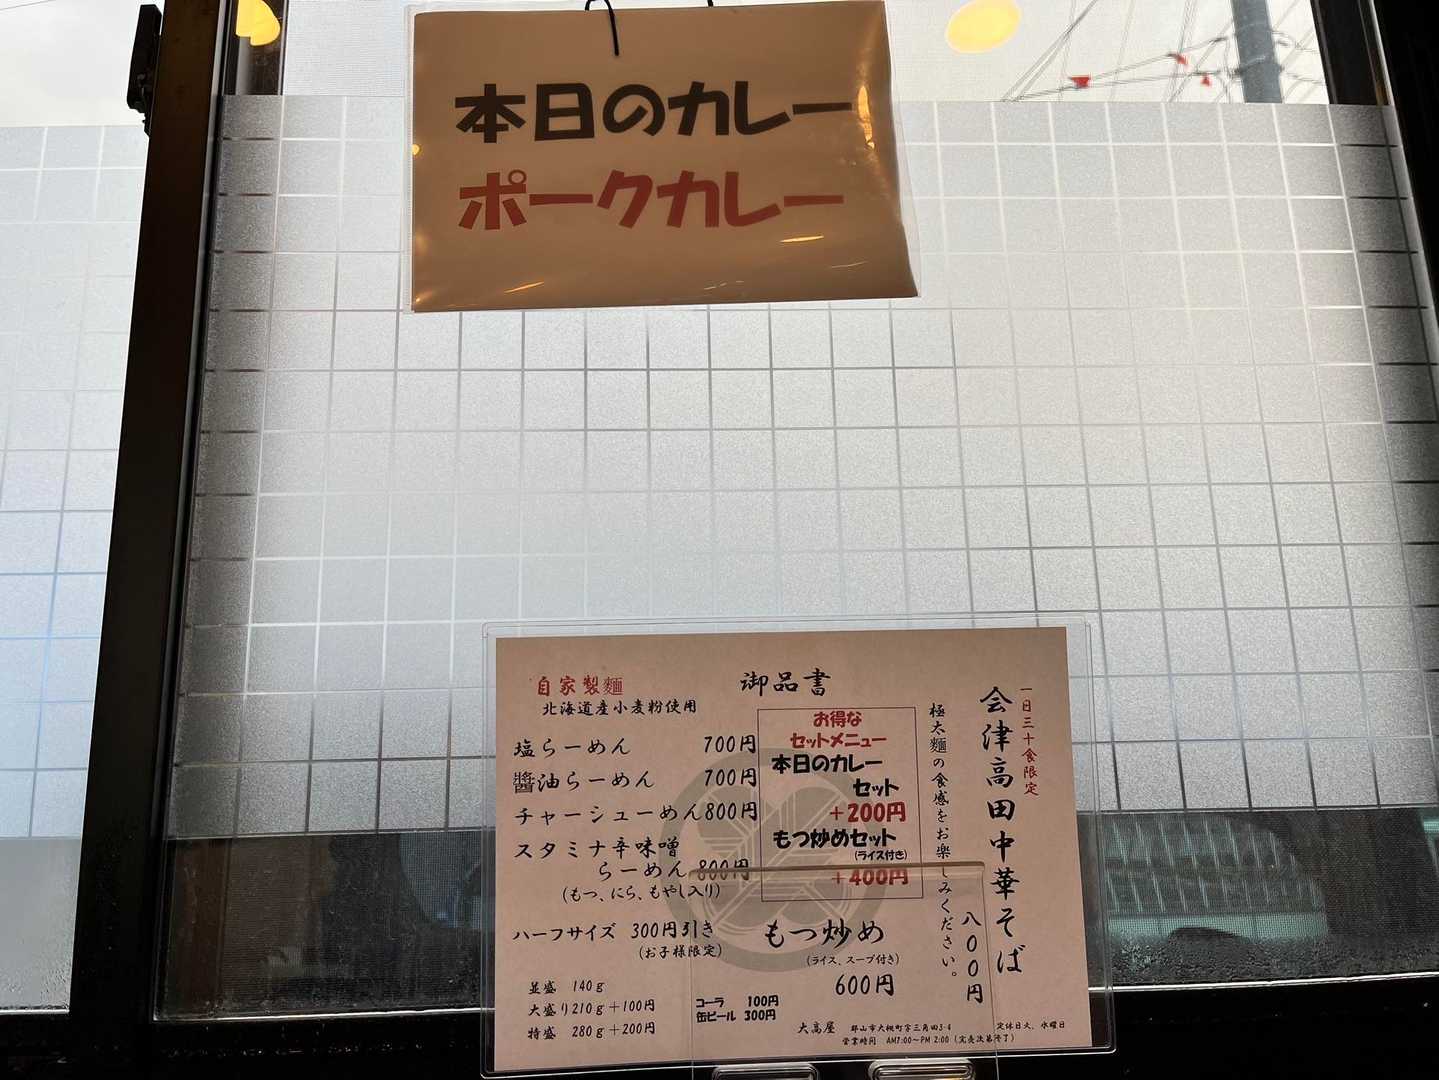 本日のカレー
ポークカレー
御品書
自家製麵
北海道産小麦粉使用
塩らーめん 700円
醬油らーめん 700円
チャーシューめん800円
スタミナ辛味噌
らーめん 800円
(もつ、にら、もやし入り)
ハーフサイズ 300円引き
(お子様限定)
並盛 140g
大盛り210g+100円
特盛 280g+200円
お得な
セットメニュー
本日のカレー
セット
+200円
もつ炒めセット
(ライス付き)
+400円
もつ炒め
(ライス、スープ付き)
600円
コーラ 100円
缶ビール 300円
一日三十食限定
会津高田中華そば
極太麵の食感をお楽しみください。
八〇〇円
大高屋 郡山市大槻町字三角田3-4 定休日火、水曜日
営業時間 AM7:00～PM 2:00 (完売次第終了)